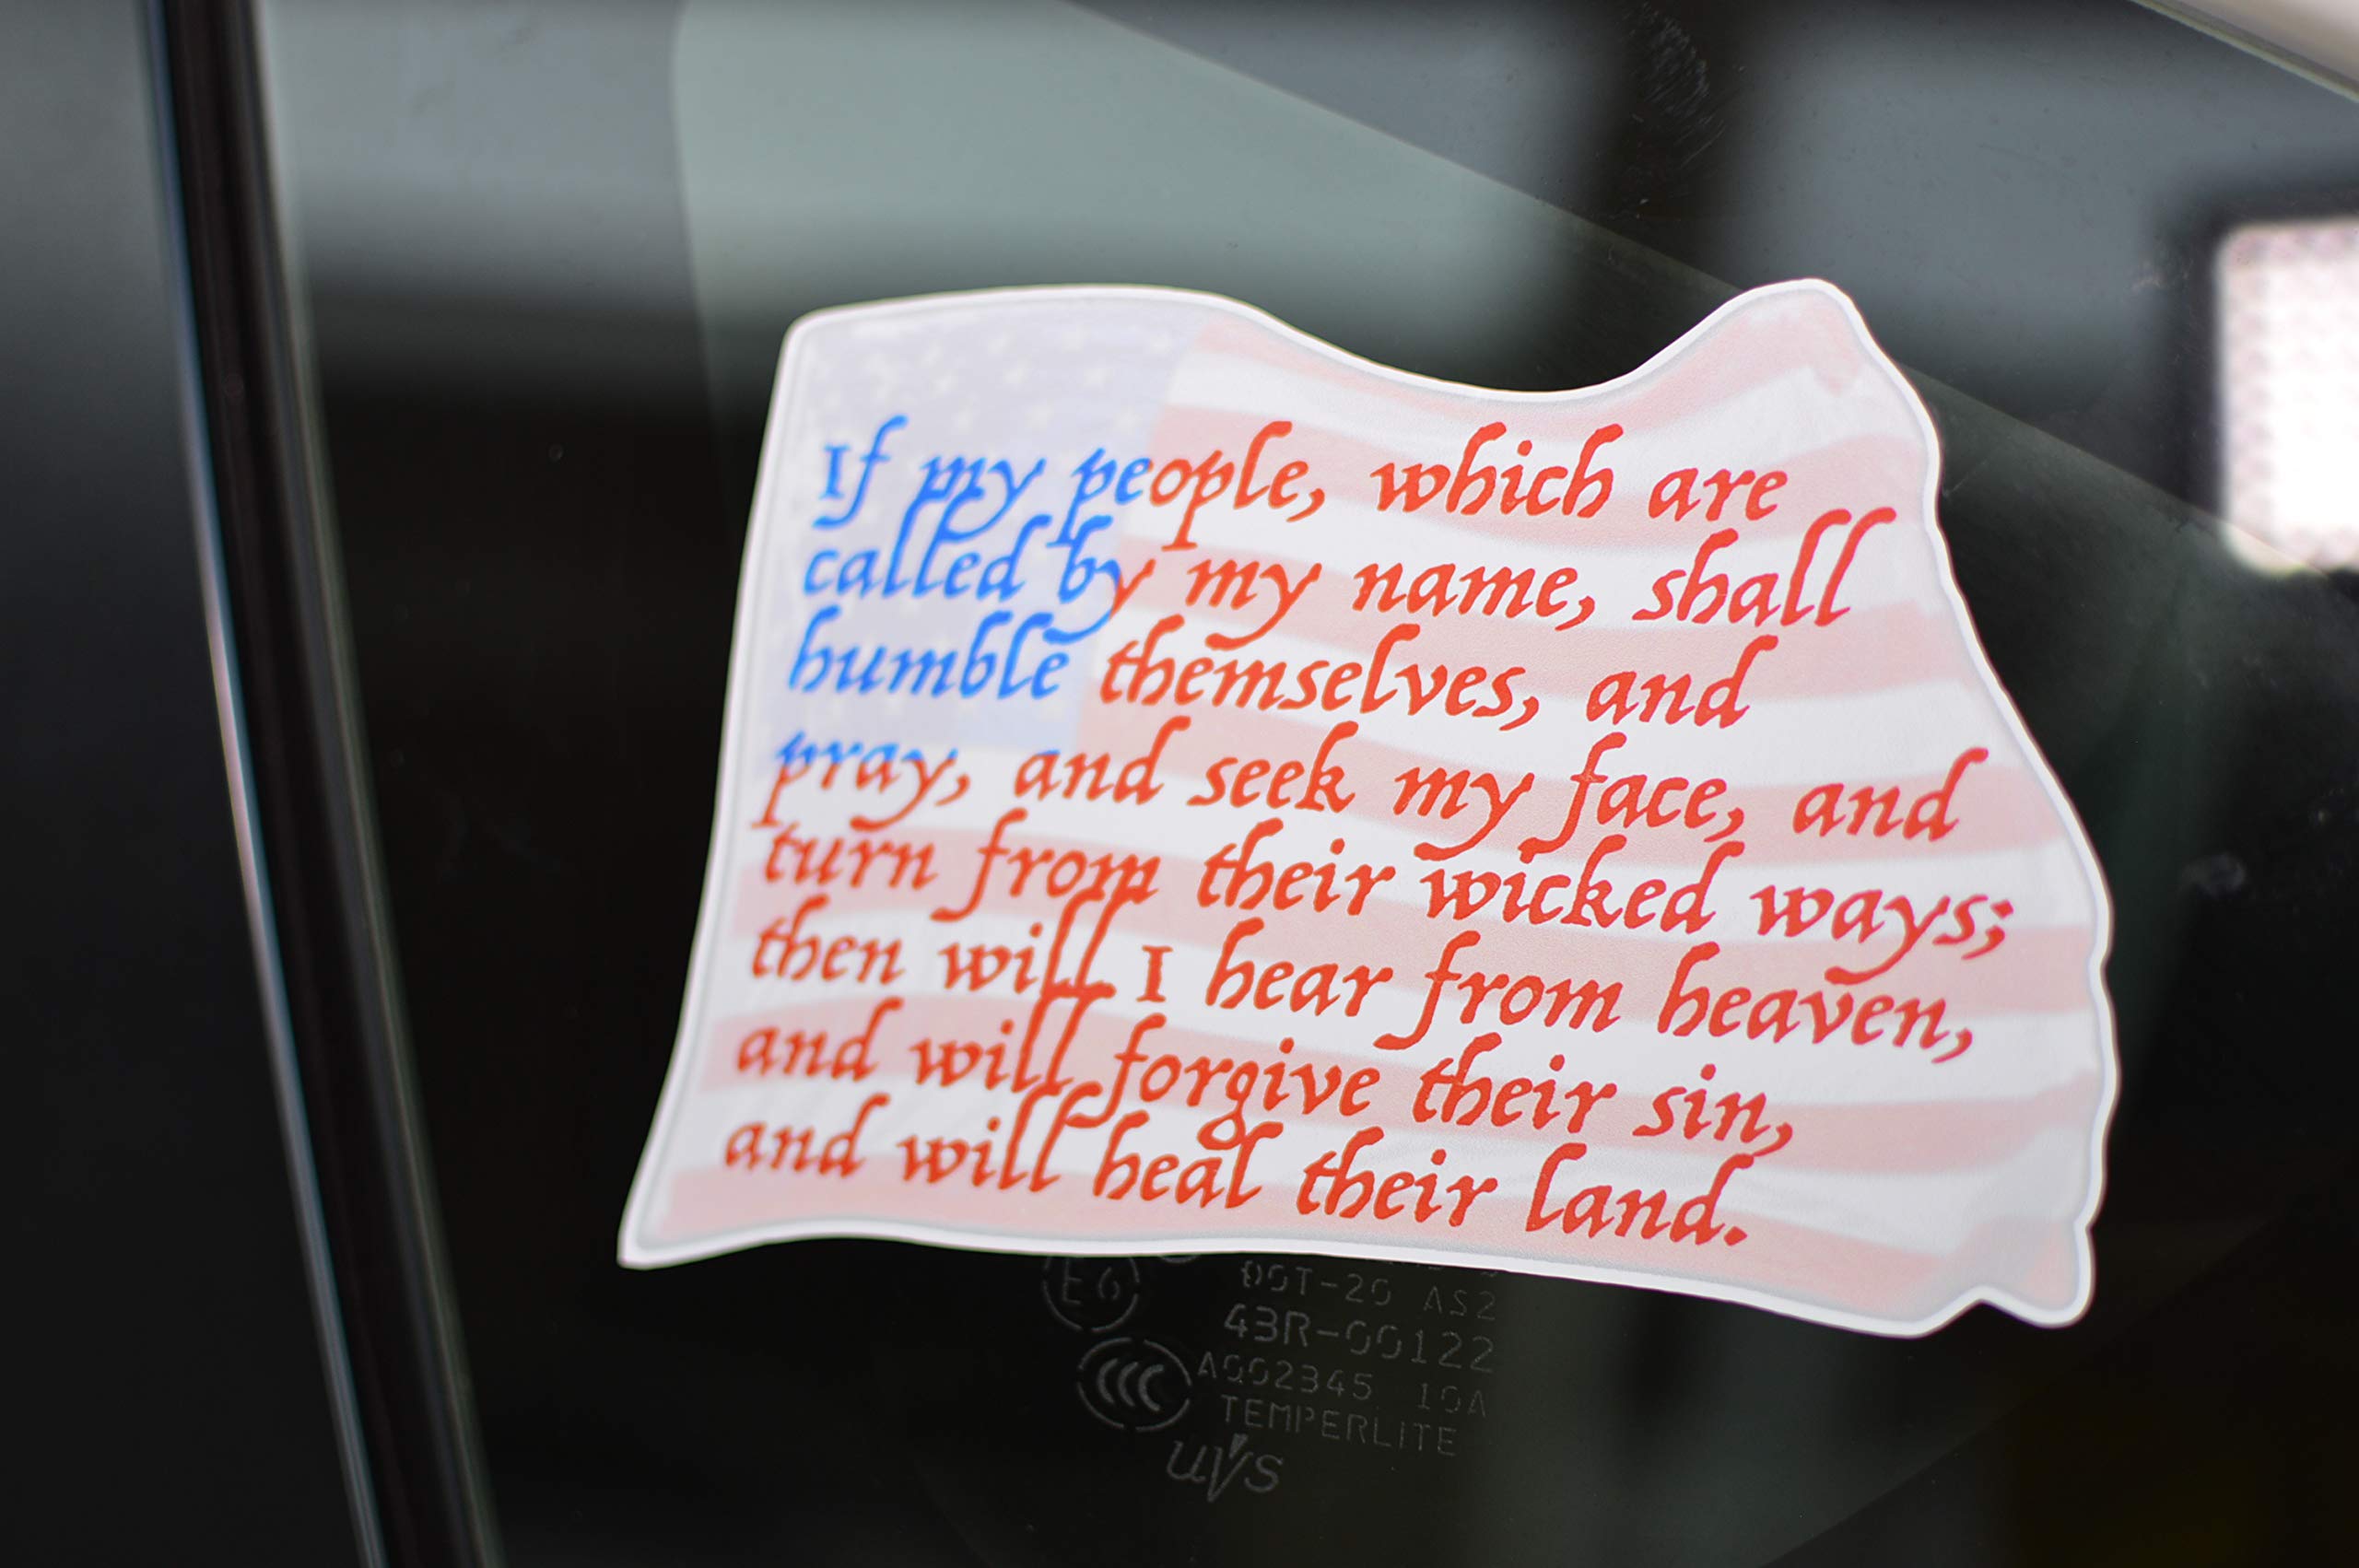 If my people, which are
called by my name, shall
humble themselves, and
pray, and seek my face, and
turn from their wicked ways;
then will I hear from heaven,
and will forgive their sin,
and will heal their land.
E6
DOT-20 AS2
43R-00122
CCC
AQ02345 10A
TEMPERLITE
uvs